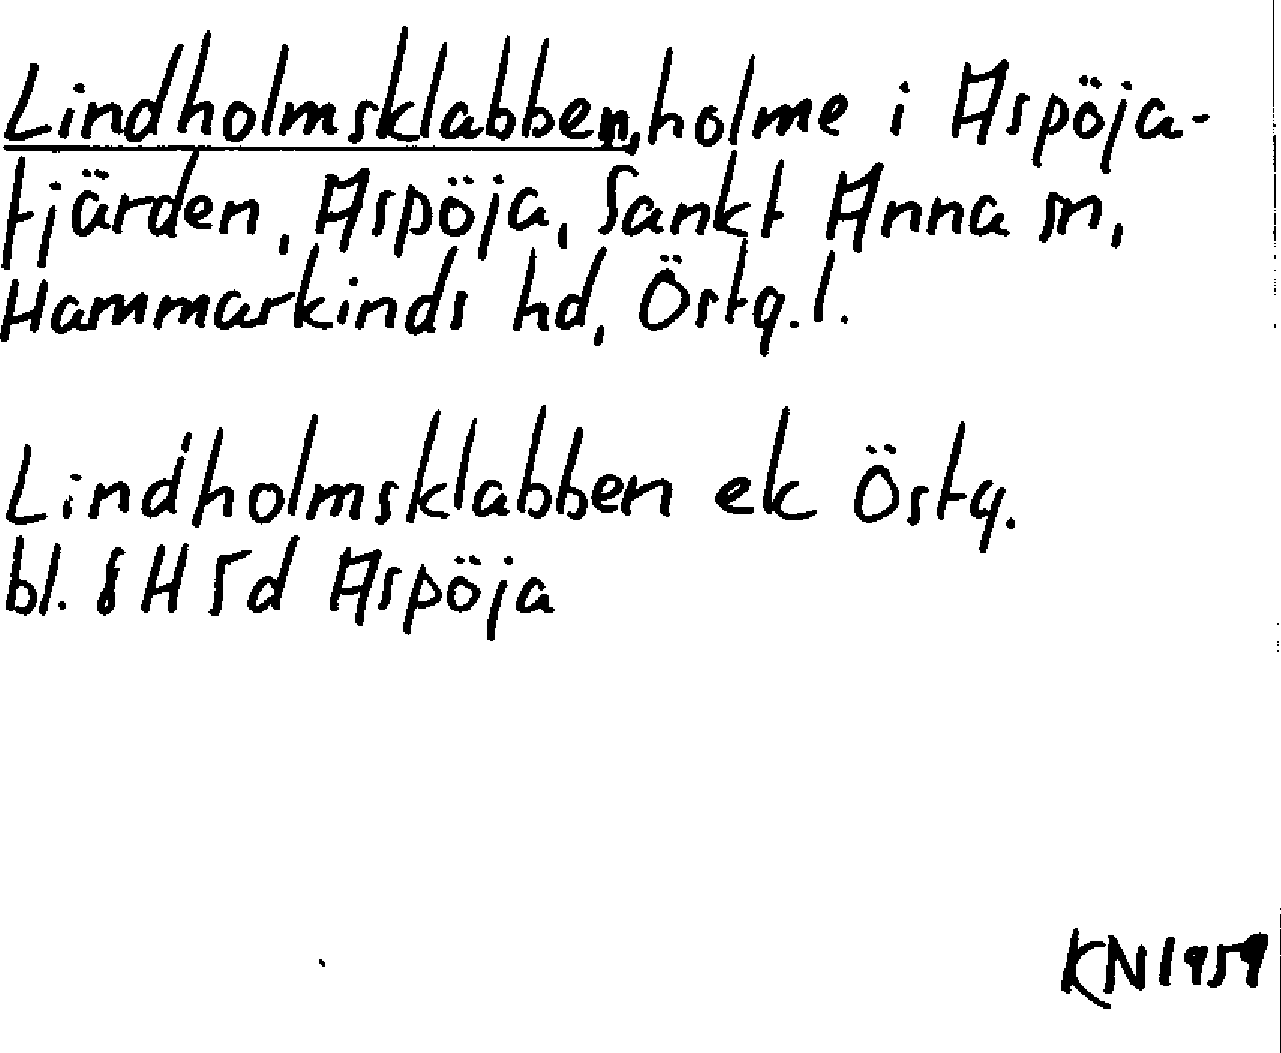 Lindholmsklabben, holme i Aspöja-
fjärden, Aspöja, Sankt Anna sn,
Hammarkinds hd, Östg. l.
Lindholmsklabben ek Östg.
bl. 8 H 5d Aspöja
KN 1959